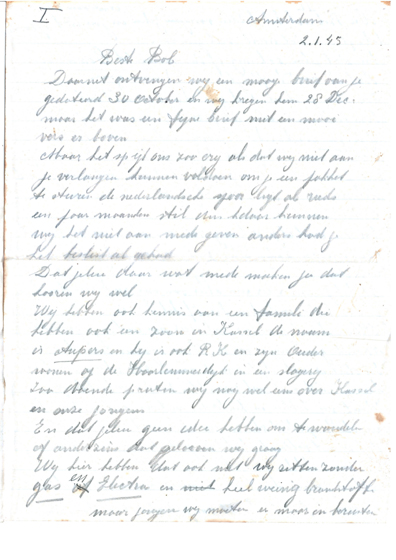 I
Amsterdam
2.1.45
Beste Bob
Daarnet ontvingen wy een mooye brief van je
gedateerd 30 October en wy kregen hem 28 Dec.
maar het was een fyne brief met een mooi
vers er boven
Maar het spyt ons zoo erg als dat wy niet aan
je verlangen kunnen voldoen om je een pakket
te sturen de nederlandsche spoor ligt als reeds
een paar maanden stil dus helaas kunnen
wy het niet aan mede geven anders had je
het besluit al gehad
Dat jelui daar wat mede maken ja dat
hooren wy wel
Wy hebben ook kennis aan een familie die
hebben ook een zoon in Kassel de naam
is en hy is ook R.K en zyn Ouders
wonen op de Haarlemmerdyk in een slagery
zoo doende praten wy nog wel eens over Kassel
en onze jongens
En dat jelui geen ader hebben om te wandelen
of anderzins dat gelooven wy graag
Wy hier hebben dat ook niet wy zitten zonder
gas en Electra en heel weinig brandstoffen
maar jongen wy moeten er maar in berusten